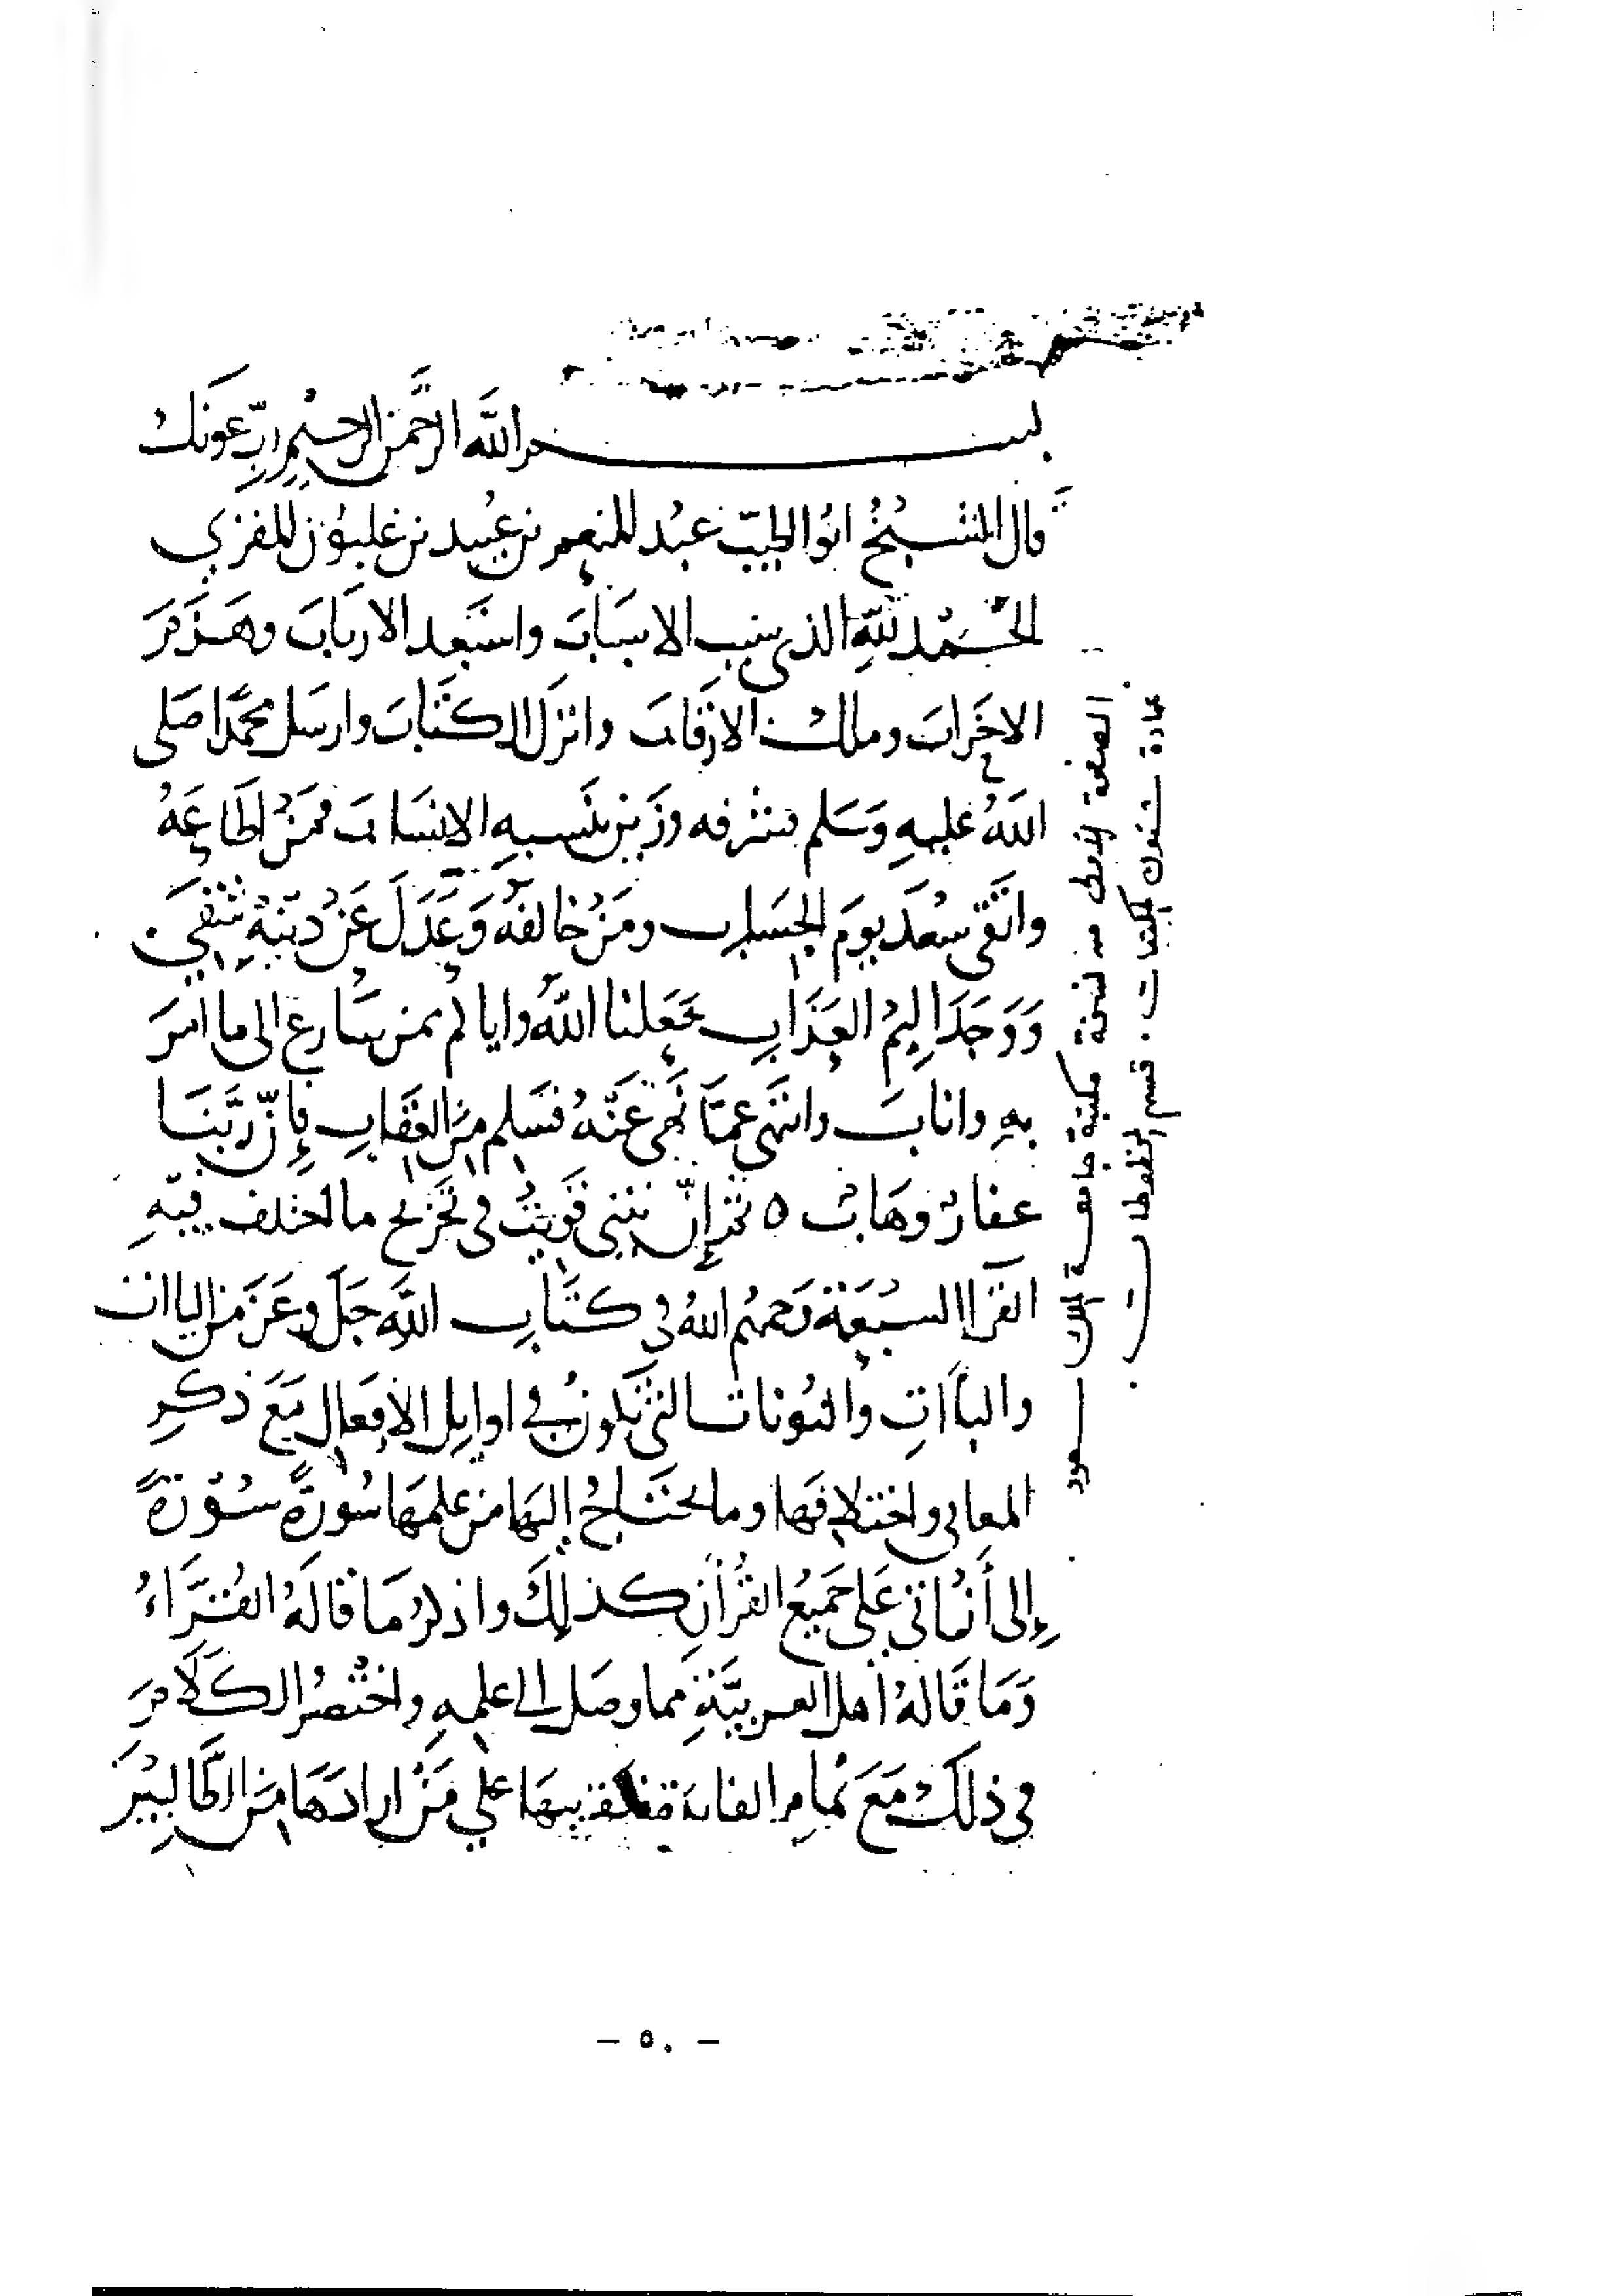 بسم الله الرحمن الرحيم رب عونك
قال الشيخ ابو الطيب عبد المنعم بن عبيد بن غلبون المقري
الحمد لله الذي سبب الاسباب واستعبد الارباب وهزم
الاحزاب وملك الارقاب وانزل الكتاب وارسل محمدا صلى
اللهُ عليهِ وَسَلم فشرفه وزين بنسبهِ الانساب فمَنْ اطاعَهُ
واتقى سعد يومَ الحساب ومَنْ خالفهُ وَعَدَلَ عَنْ دينهِ شقي
وَوَجَدَ اليمُ العَذَابِ جَعَلنا اللهُ واياكم ممن سارع الى ما امرَ
بهِ وانابَ وانتهى عمّا نهى عَنهُ فسَلم مِنَ العقاب فإنّ ربّنا
غفارٌ وهَابٌ ٥ ثم إنّ نيتي قويتْ في تخريج ما اختلف فيهِ
القرا السبْعَة رَحمهم اللهُ في كتاب اللهِ جَلّ وعَز مَن الياات
والتاآتِ والنونات التي تكون في اوايل الافعال مَعَ ذكرِ
المعاني واختلافها وما يحتاجُ إليها من علمها سُورةً سُورةً
إلى أن اتي عَلى جَميع القرآن كذلكَ واذكرُ مَا قالهُ القُرَّاءُ
وَمَا قالهُ أهل العربيّةِ مما وصَل الى علمهِ واختصرُ الكَلامَ
في ذلك مَعَ تمام الفايدة بها على مَنْ ارادَهَا مِنَ الطالبينَ
الصفحة الأولى من نسخة مكتبة جامعة الملك سعود
عمادة شئون المكتبات . قسم المخطوطات .
- ٥٠ -